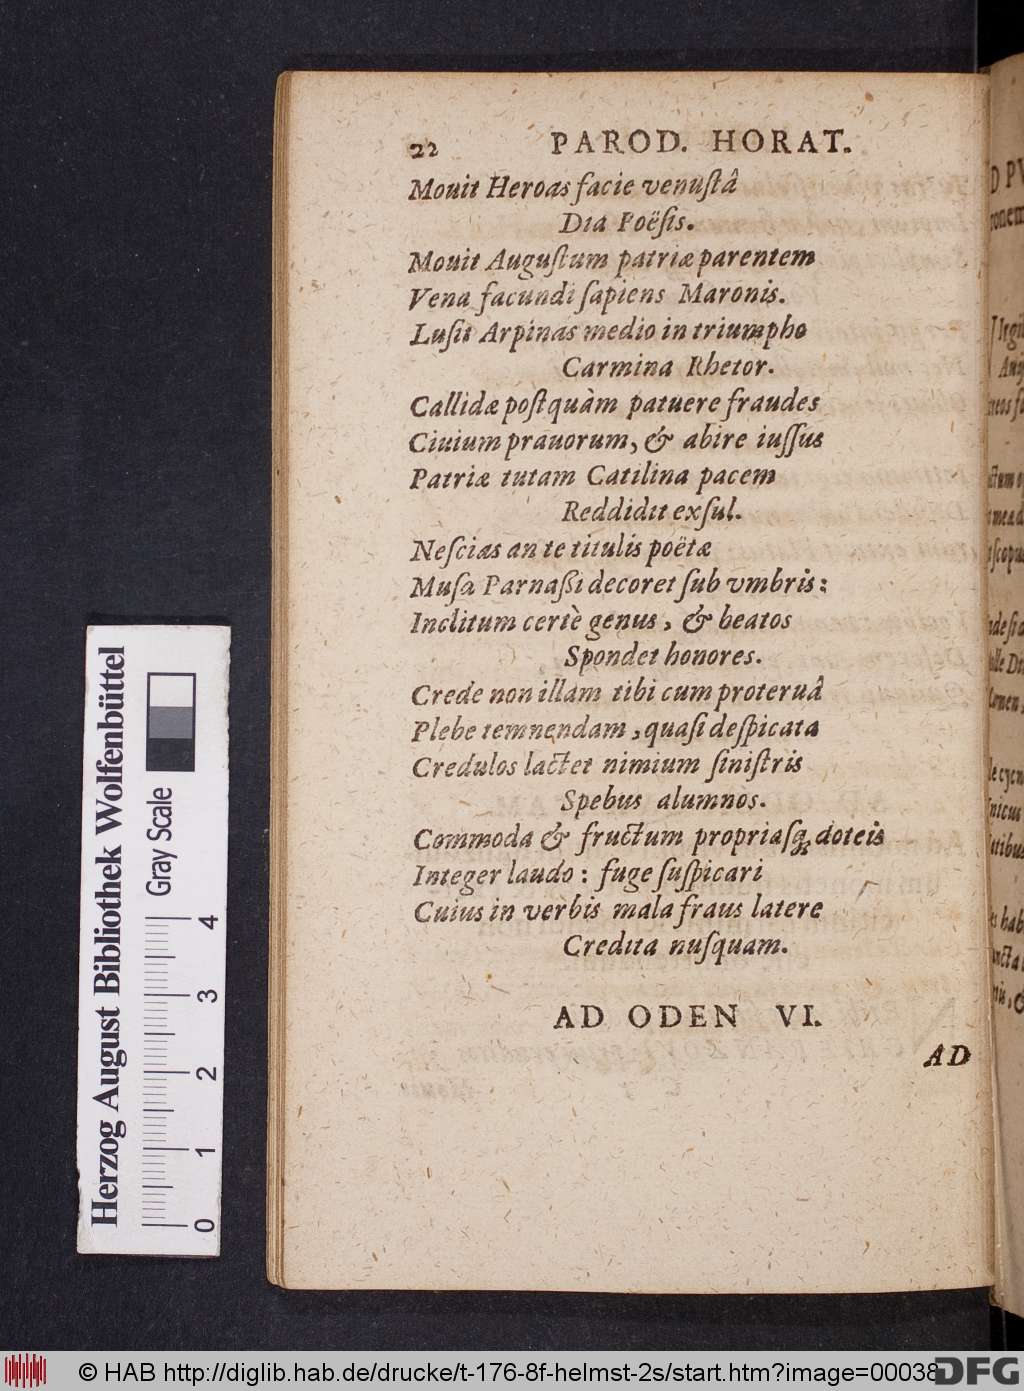 22 PAROD. HORAT.
Mouit Heroas facie venuſtâ
Dia Poëſis.
Mouit Auguſtum patriæ parentem
Vena facundi ſapiens Maronis.
Luſit Arpinas medio in triumpho
Carmina Rhetor.
Callidæ poſtquàm patuere fraudes
Ciuium prauorum, & abire iuſſus
Patriæ tutam Catilina pacem
Reddidit exſul.
Neſcias an te titulis poëtæ
Muſa Parnaßi decoret ſub vmbris:
Inclitum certè genus, & beatos
Spondet honores.
Crede non illam tibi cum proteruâ
Plebe temnendam, quaſi deſpicata
Credulos lactet nimium ſiniſtris
Spebus alumnos.
Commoda & fructum propriaſq; doteis
Integer laudo: fuge ſuſpicari
Cuius in verbis mala fraus latere
Credita nuſquam.
AD ODEN VI.
AD
Herzog August Bibliothek Wolfenbüttel
Gray Scale
0 1 2 3 4
© HAB http://diglib.hab.de/drucke/t-176-8f-helmst-2s/start.htm?image=00038
DFG